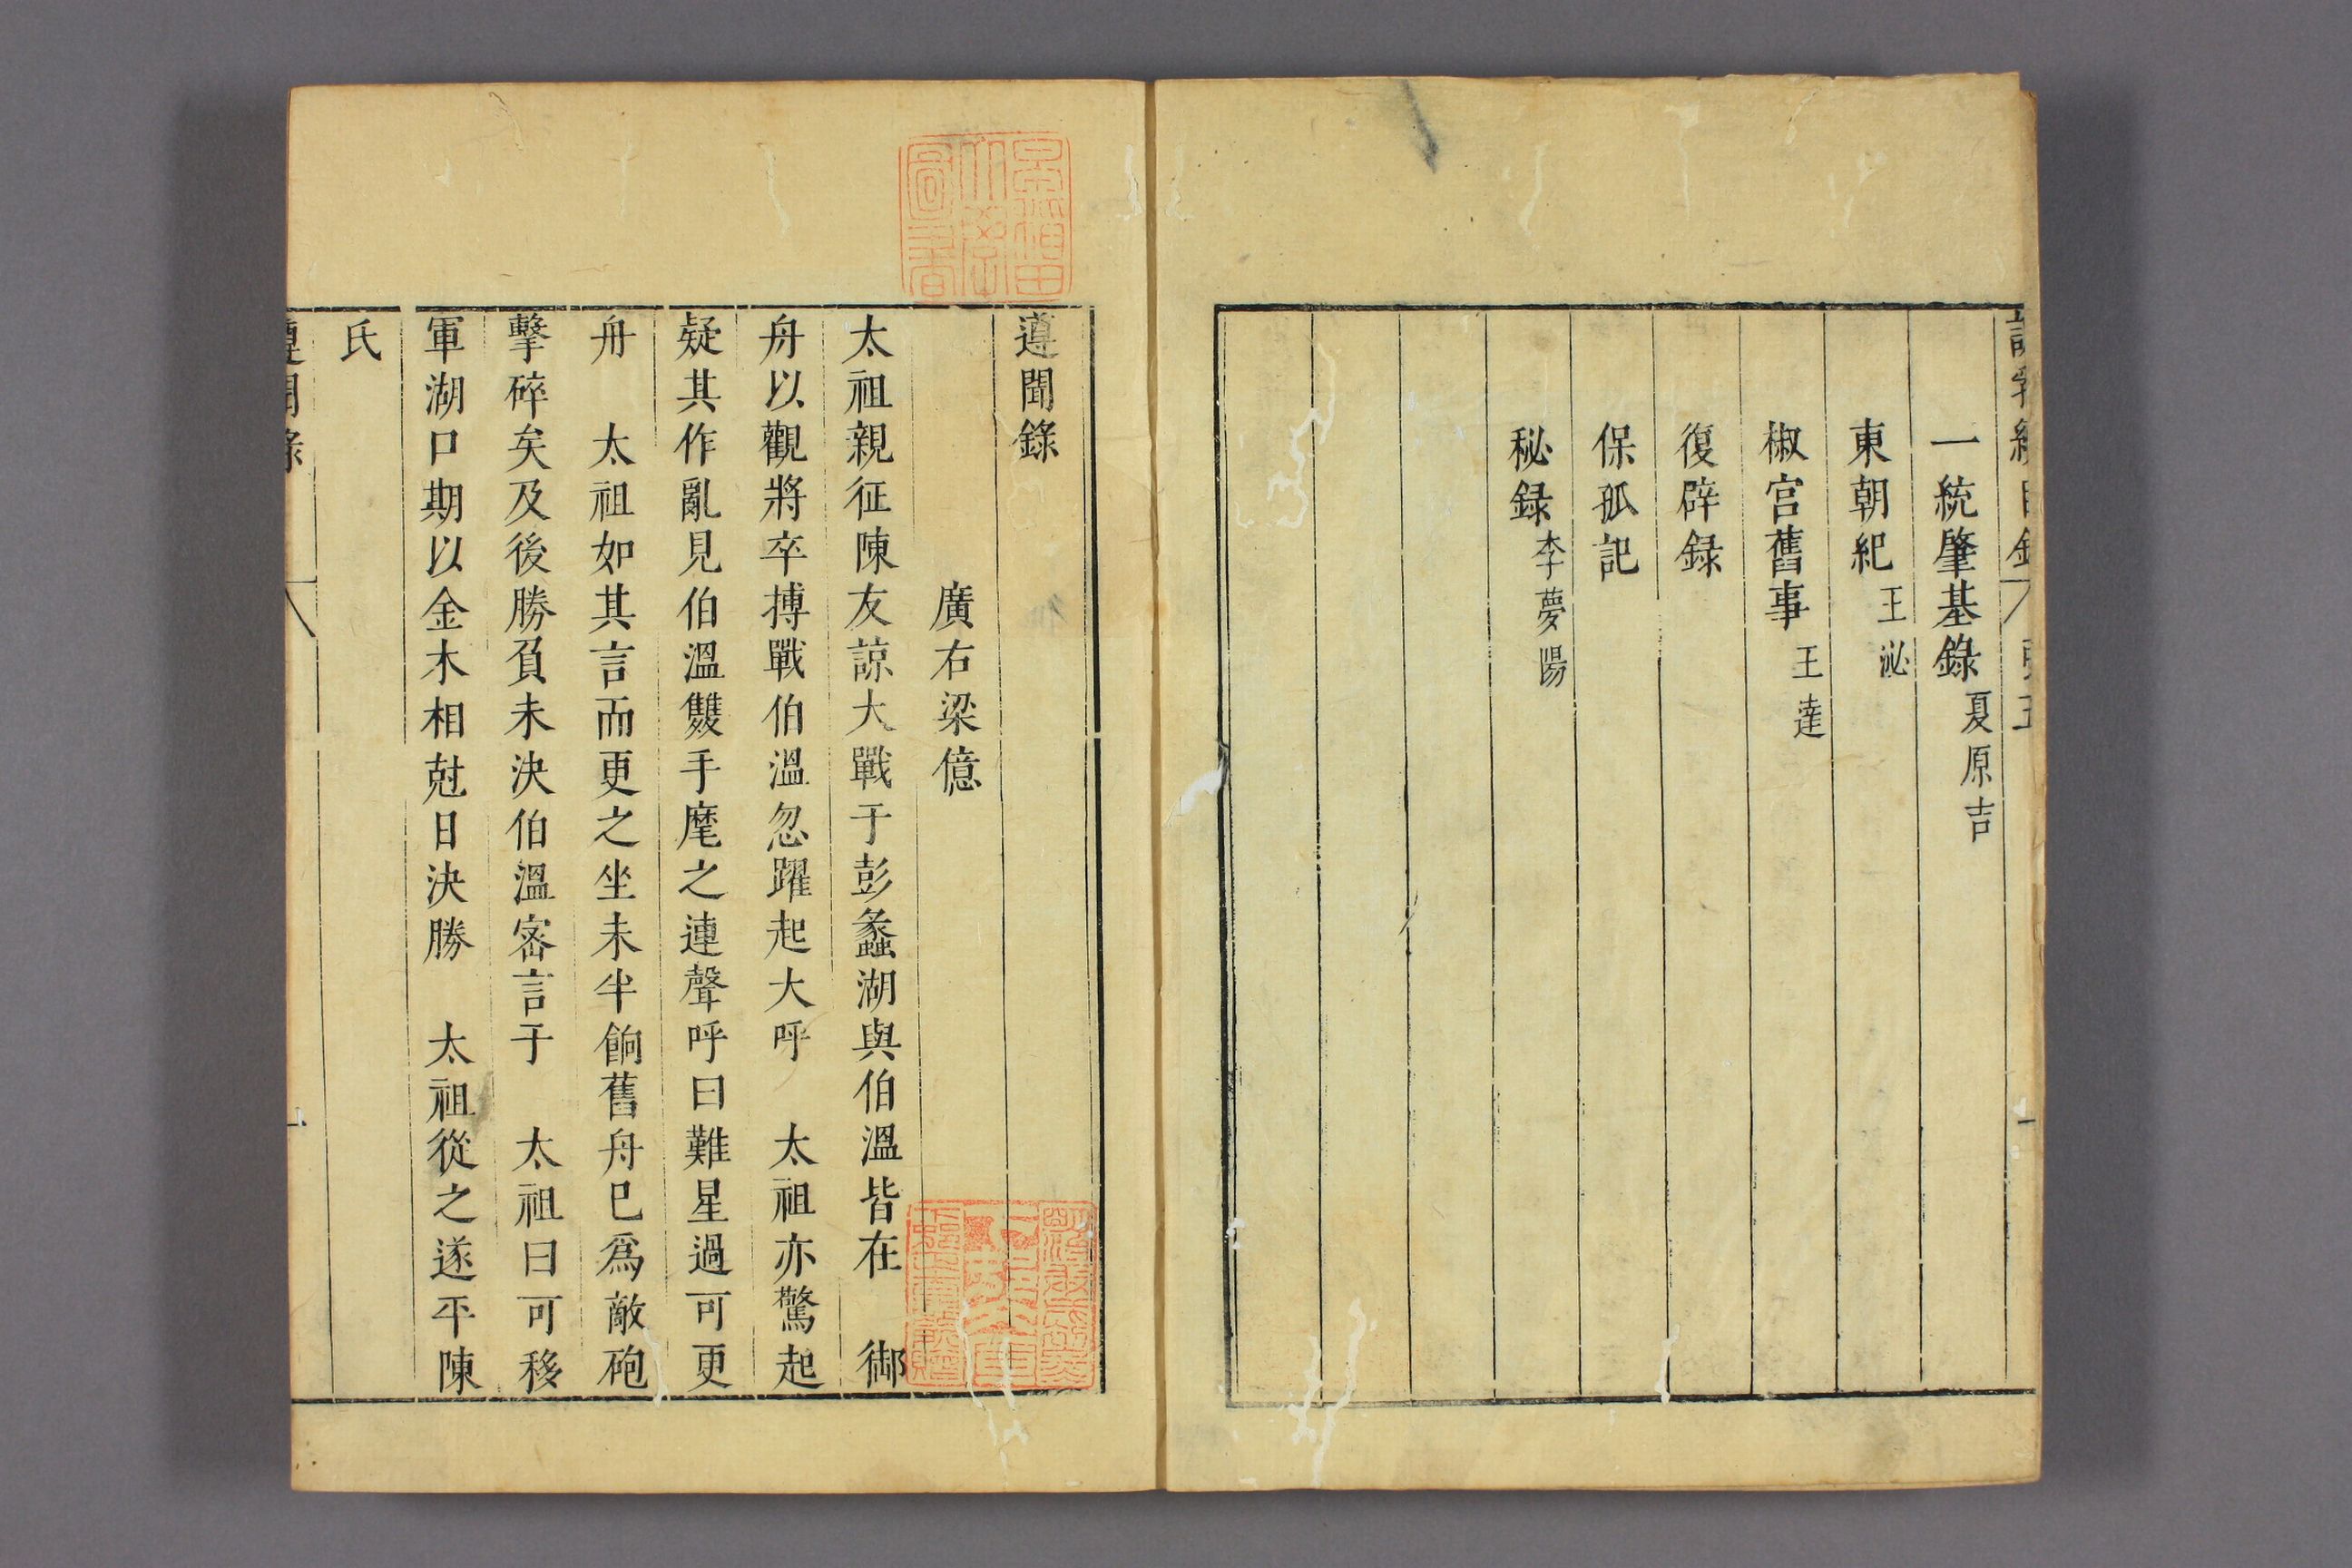 一統肇基錄 夏原吉
東朝紀 王泌
椒宮舊事 王達
復辟録
保孤記
秘録 李夢陽
遵聞錄
廣右梁億
太祖親征陳友諒大戰于彭蠡湖與伯溫皆在 御
舟以觀將卒搏戰伯溫忽躍起大呼 太祖亦驚起
疑其作亂見伯溫雙手麾之連聲呼曰難星過可更
舟 太祖如其言而更之坐未半餉舊舟巳爲敵砲
擊碎矣及後勝負未決伯溫密言于 太祖曰可移
軍湖口期以金木相尅日決勝 太祖從之遂平陳
氏
遵聞錄